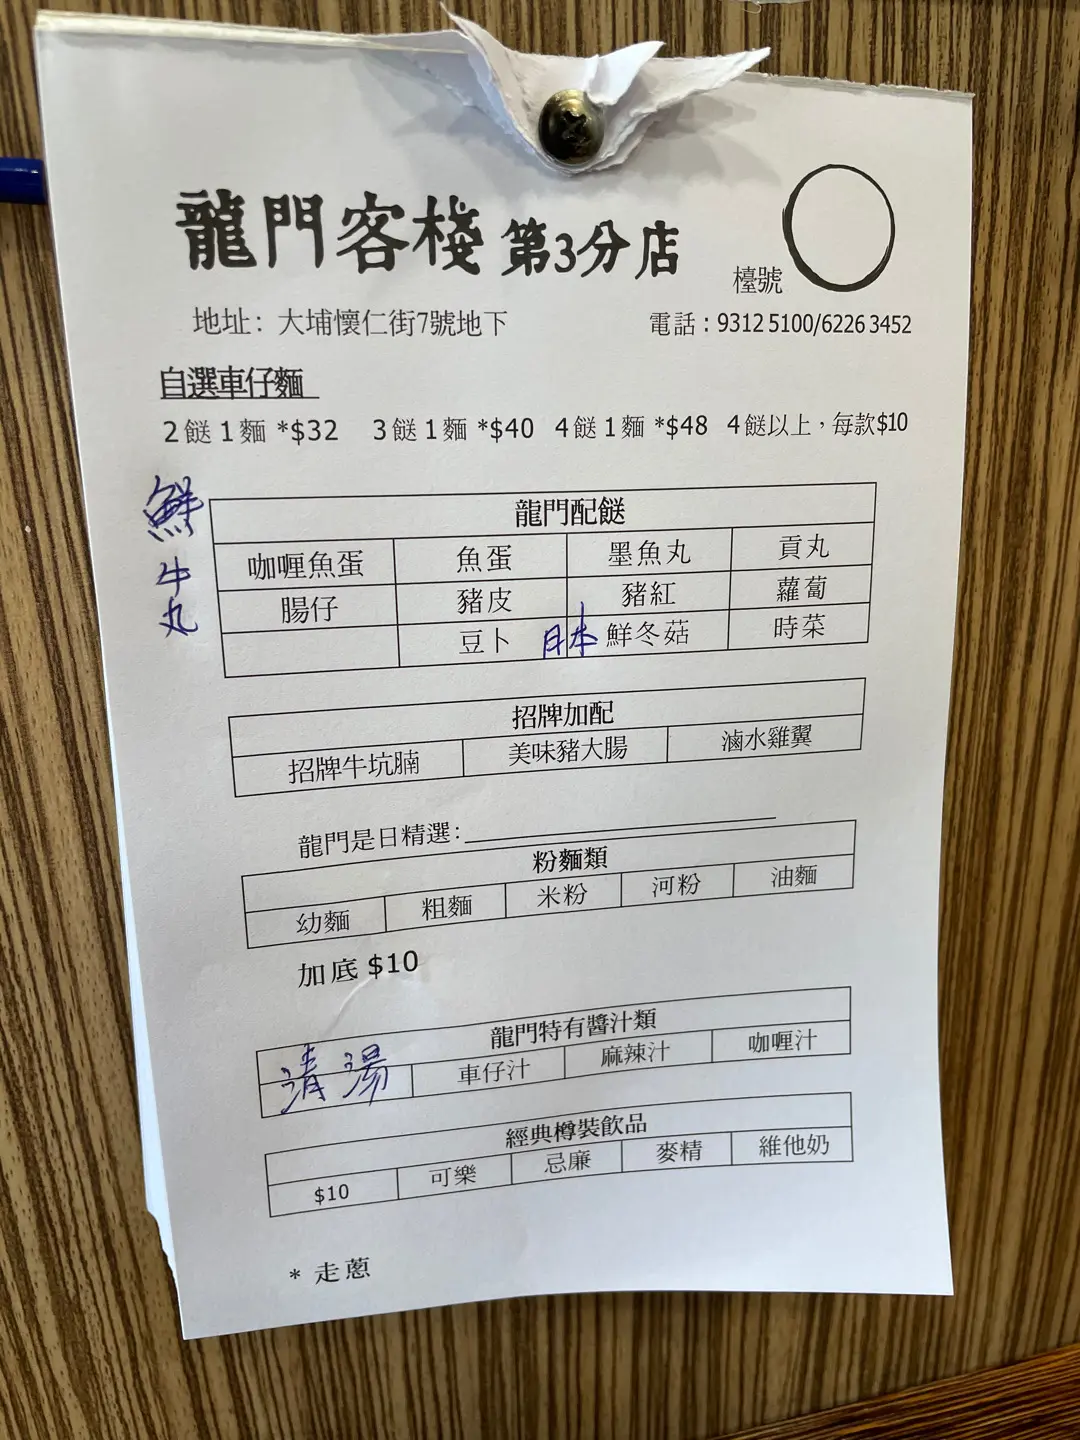 龍門客棧 第3分店
檯號
地址：大埔懷仁街7號地下
電話：9312 5100/6226 3452
自選車仔麵
2餸1麵 *$32 3餸1麵 *$40 4餸1麵 *$48 4餸以上，每款$10
鮮牛丸
龍門配餸
咖喱魚蛋 魚蛋 墨魚丸 貢丸
腸仔 豬皮 豬紅 蘿蔔
豆卜 日本鮮冬菇 時菜
招牌加配
招牌牛坑腩 美味豬大腸 滷水雞翼
龍門是日精選：
粉麵類
幼麵 粗麵 米粉 河粉 油麵
加底 $10
龍門特有醬汁類
清湯 車仔汁 麻辣汁 咖喱汁
經典樽裝飲品
$10 可樂 忌廉 麥精 維他奶
* 走蔥